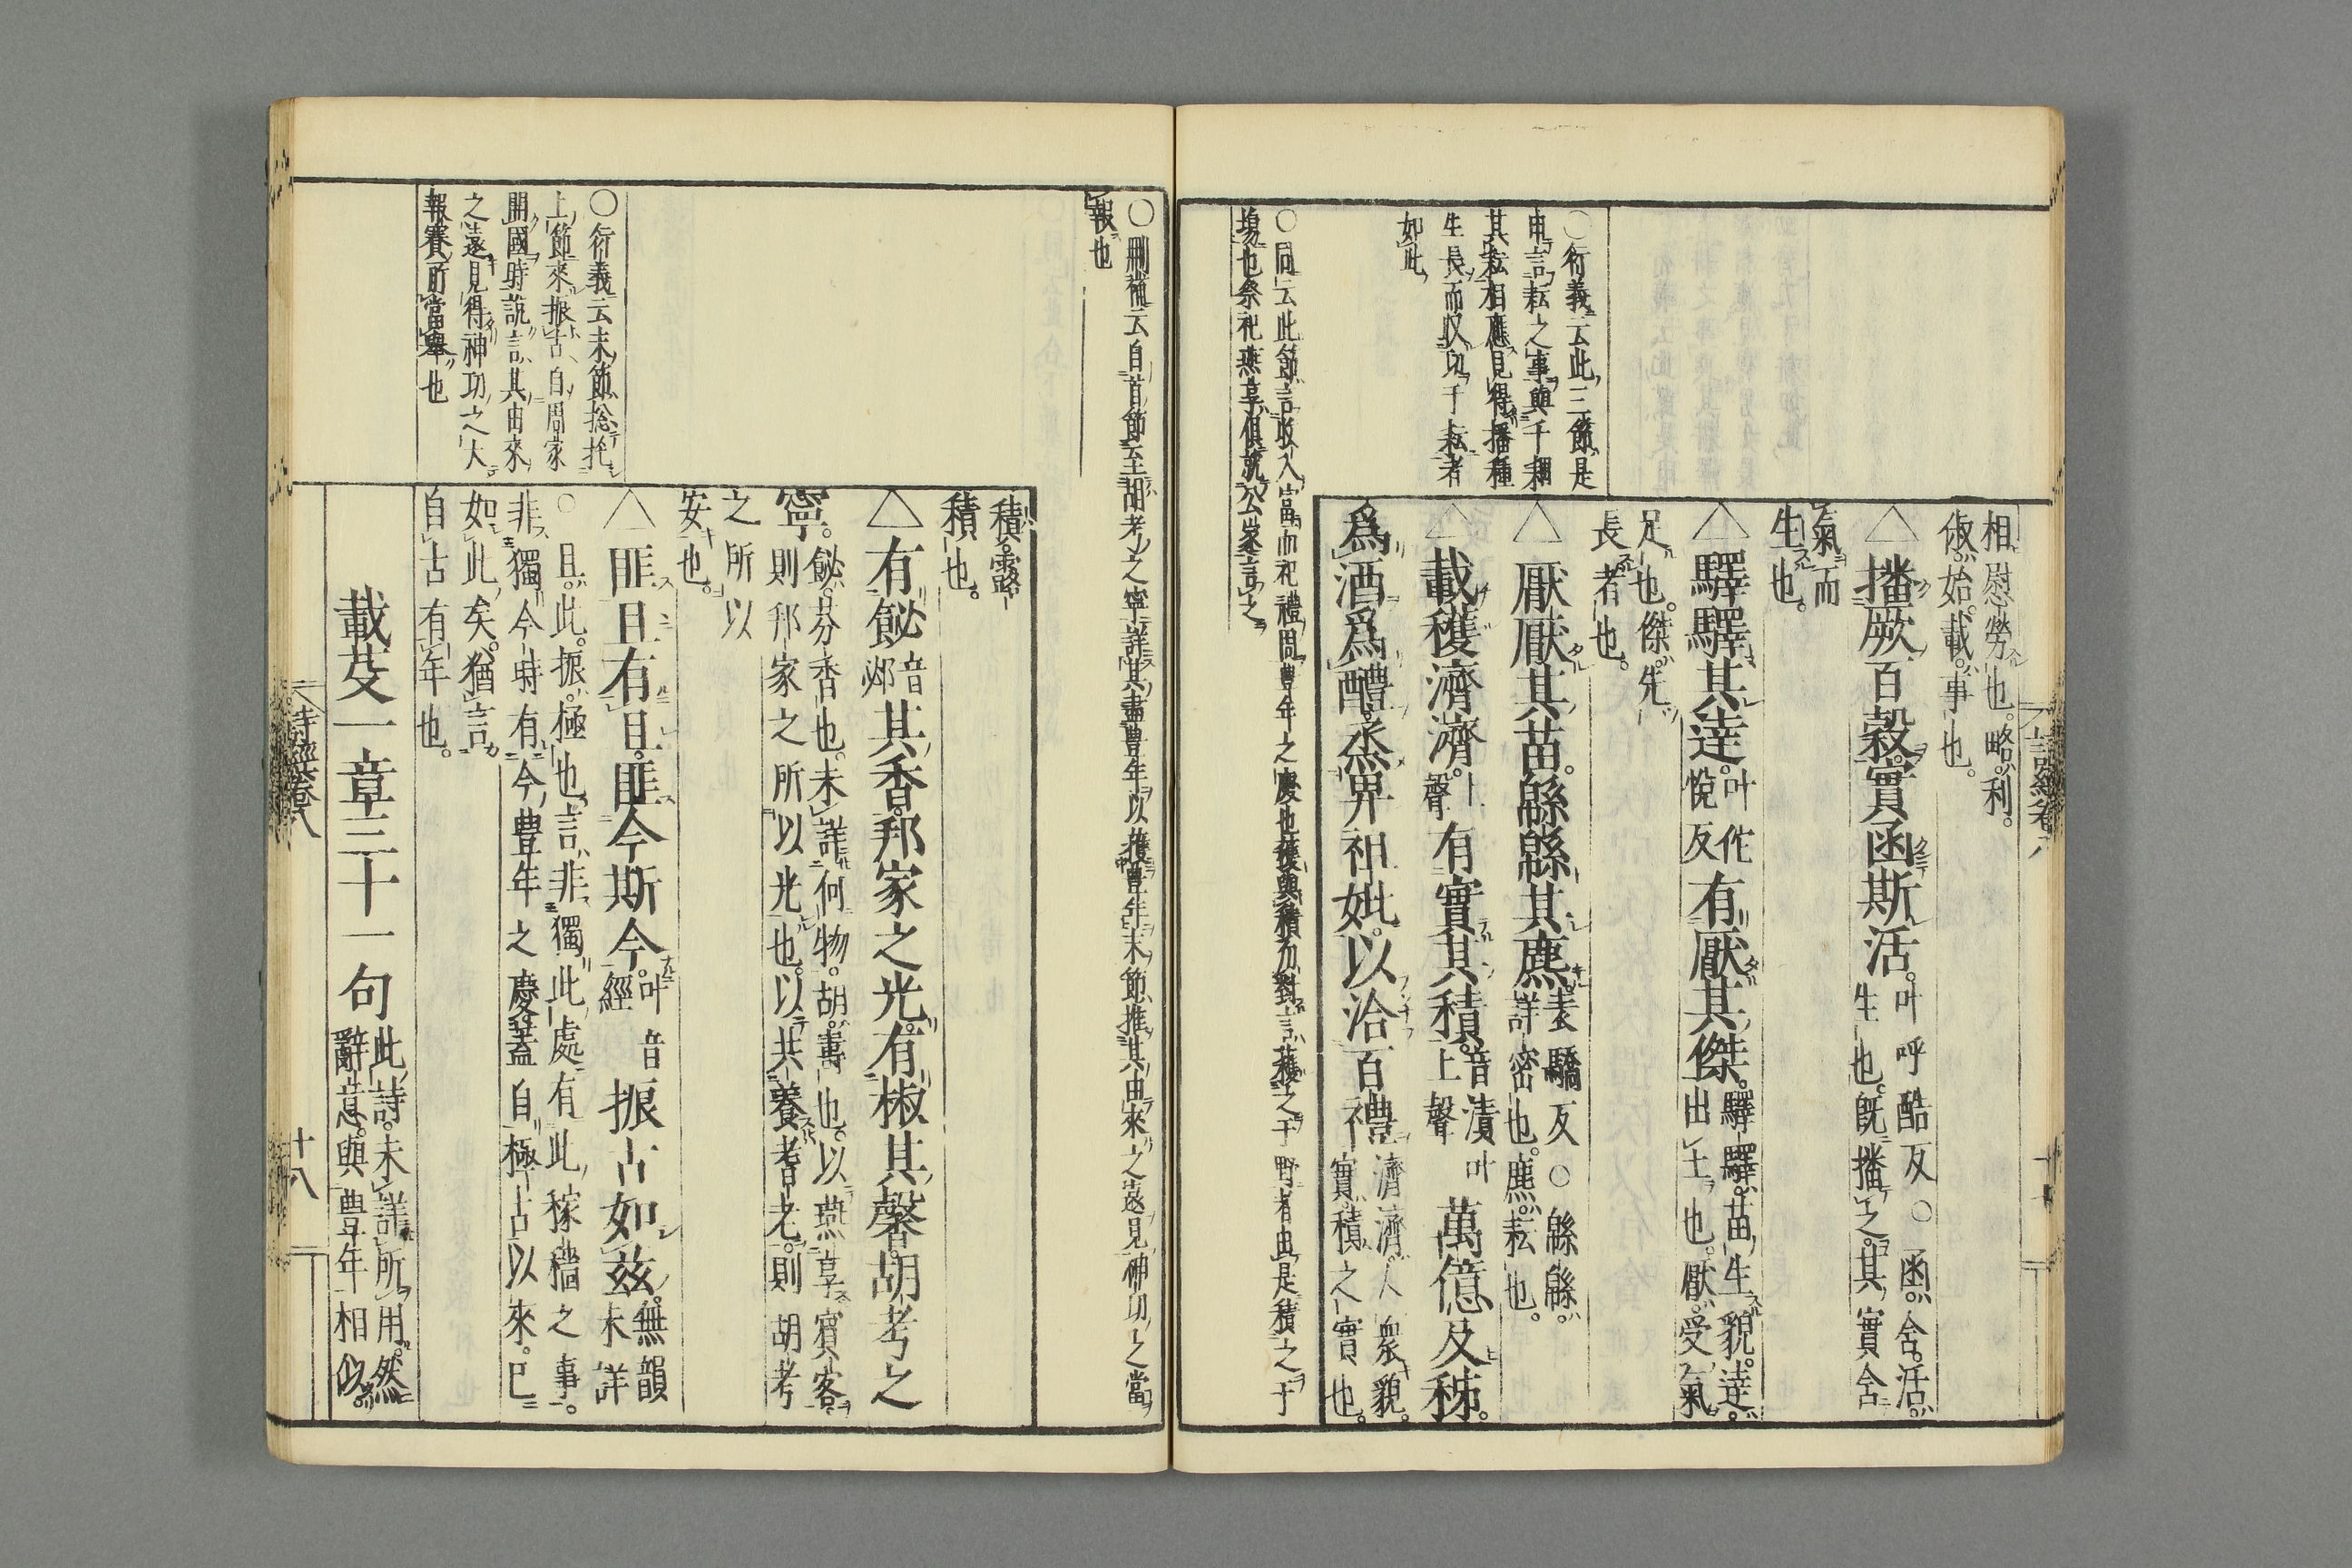 相慰勞也。略。利。
俶。始。載。事也。
△播厥百穀。實函斯活。叶呼酷反○函。含。活。
生也。既播之。其實含
氣而
生也。
△驛驛其達。叶佗悅反有厭其傑。驛驛。苗生貌。達。
出土也。厭。受氣
足也。傑。先
長者也。
△厭厭其苗。緜緜其麃。表驕反○緜緜。
詳密也。麃。耘也。
△載穫濟濟。上聲有實其積。音漬叶上聲萬億及秭。
爲酒爲醴。烝畀祖妣。以洽百禮濟濟。人衆貌。
實。積之實也。
○衍義云此三節是
申言耘之事與千耦
其耘相應見得播種
生長而収功于耘者
如此
○同云此節言收入富而祀禮周豊年之慶也穫與積勿對言穫之于野者由是積之于
場也祭祀燕享俱就公家言之
詩經卷八
○刪補云自首節至胡考之寧詳其盡豊年以穫豊年末節推其由來之遠見神功之當
報也
積。露
積也。
△有飶音邲其香。邦家之光。有椒其馨。胡考之
寧。飶。芬香也。未詳何物。胡。壽也。以燕享賓客
則邦家之所以光也。以共養耆老。則胡考
之所以
安也。
△匪且有且。匪今斯今。叶音經振古如玆。無韻未詳
○且。此。振。極也。言。非獨此處有此稼穡之事。
非獨今時有今豊年之慶。蓋自極古以來。已
如此矣。猶言
自古有年也。
○衍義云末節捴托
上節來振古自周家
開國時說言其由來
之遠見得神功之大
報賽所當舉也
載芟一章三十一句此詩。未詳所用。然
辭意。與豊年相似
詩經卷八
十八